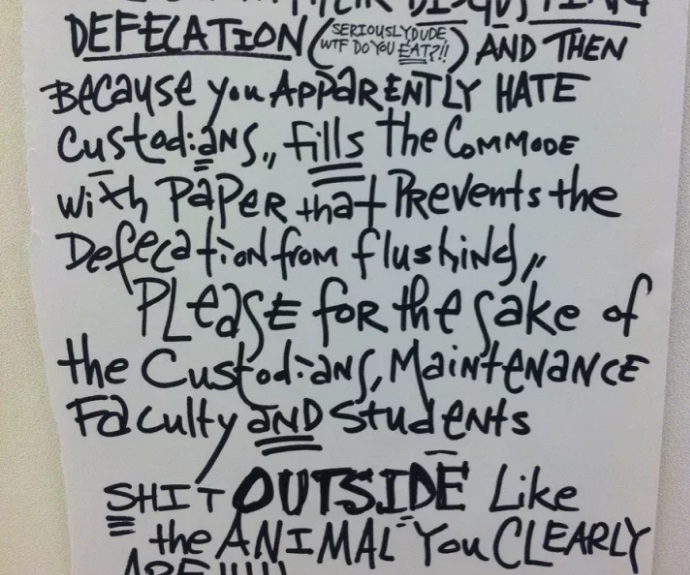 THEIR DISGUSTING
DEFECATION (SERIOUSLY DUDE,
WTF DO YOU EAT?!!) AND THEN
BECAUSE you APPARENTLY HATE
Custodians,, fills the COMMODE
with PAPER that PREVENTS the
Defecation from flushing,,
PLEASE for the sake of
the Custodians, MAINTENANCE
Faculty AND Students
SHIT OUTSIDE Like
the ANIMAL You CLEARLY
ARE!!!!!